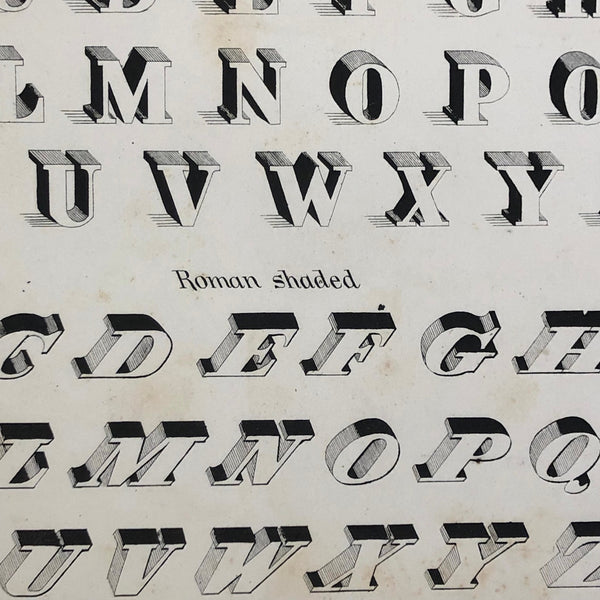 L M N O P Q
U V W X Y
Roman shaded
C D E F G H
L M N O P Q
U V W X Y Z